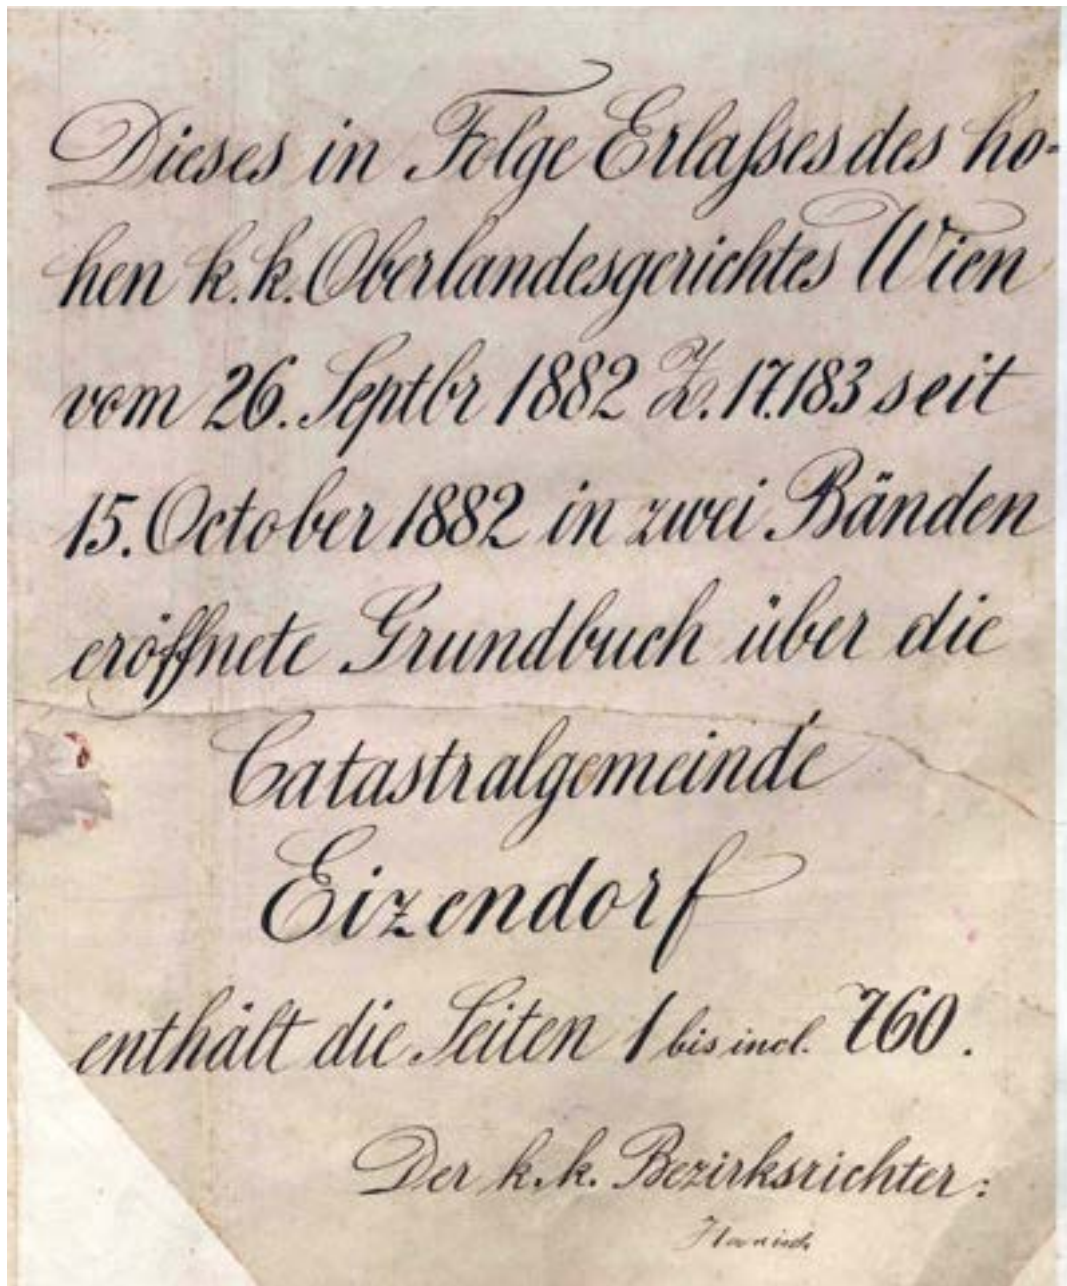 Dieses in Folge Erlaßes des ho-
hen k.k. Oberlandesgerichtes Wien
vom 26. Septbr 1882 Z. 17.183 seit
15. October 1882 in zwei Bänden
eröffnete Grundbuch über die
Catastralgemeinde
Eizendorf
enthält die Seiten 1 bis incl. 760.
Der k.k. Bezirksrichter: